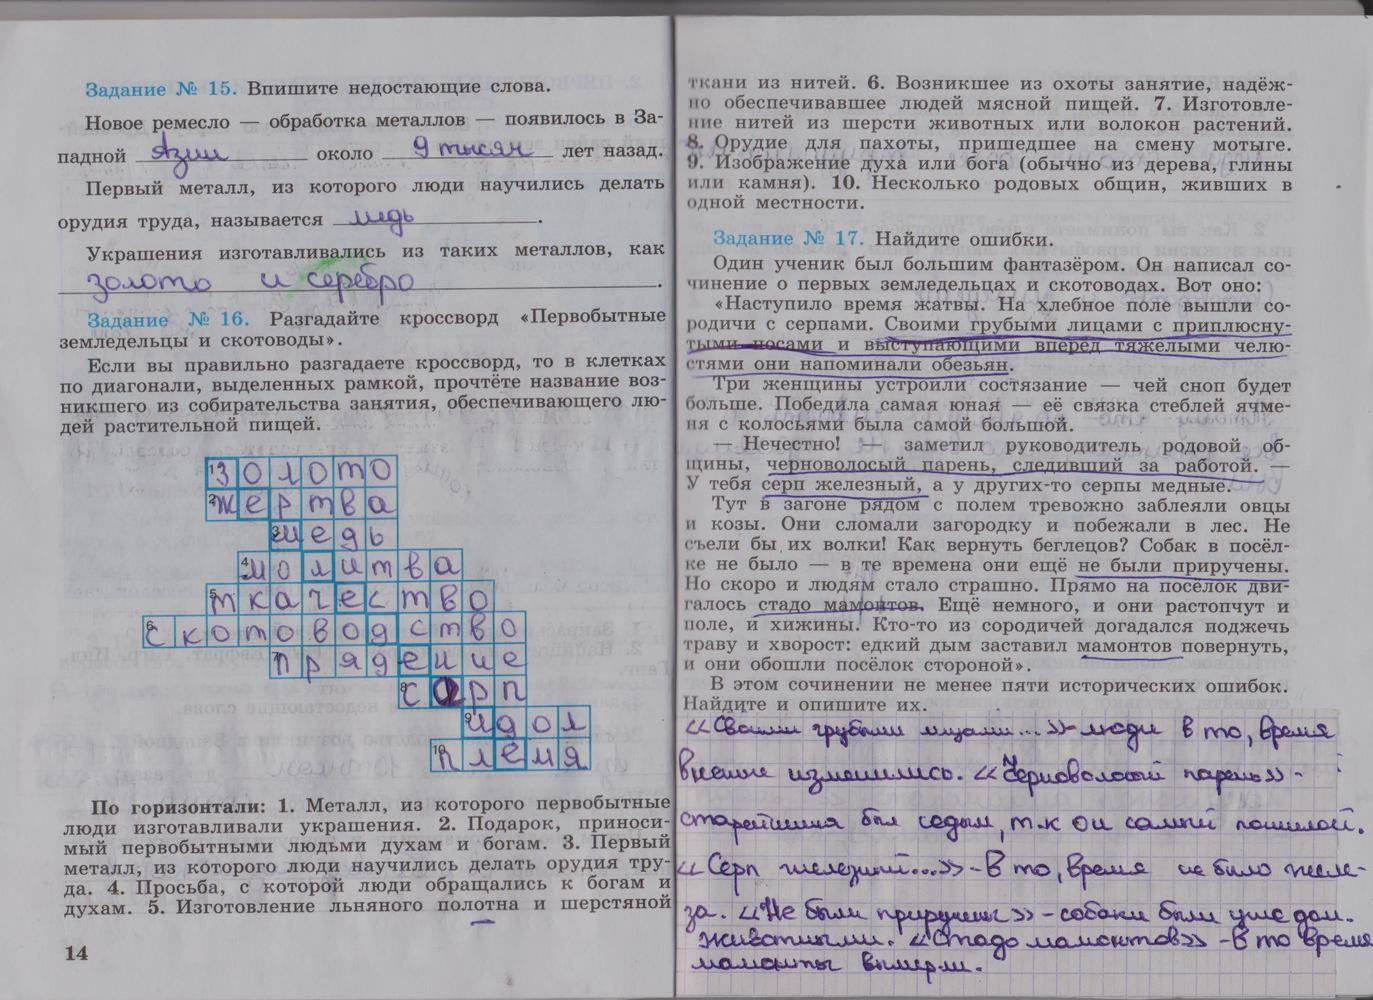 Задание № 15. Впишите недостающие слова.
Новое ремесло — обработка металлов — появилось в За-
падной Азии около 9 тысяч лет назад.
Первый металл, из которого люди научились делать
орудия труда, называется медь.
Украшения изготавливались из таких металлов, как
золото и серебро.
Задание № 16. Разгадайте кроссворд «Первобытные
земледельцы и скотоводы».
Если вы правильно разгадаете кроссворд, то в клетках
по диагонали, выделенных рамкой, прочтёте название воз-
никшего из собирательства занятия, обеспечивающего лю-
дей растительной пищей.
1 золото
2 жертва
3 медь
4 молитва
5 ткачество
6 скотоводство
7 прядение
8 сарп
9 идол
10 племя
По горизонтали: 1. Металл, из которого первобытные
люди изготавливали украшения. 2. Подарок, приноси-
мый первобытными людьми духам и богам. 3. Первый
металл, из которого люди научились делать орудия тру-
да. 4. Просьба, с которой люди обращались к богам и
духам. 5. Изготовление льняного полотна и шерстяной
14
ткани из нитей. 6. Возникшее из охоты занятие, надёж-
но обеспечивавшее людей мясной пищей. 7. Изготовле-
ние нитей из шерсти животных или волокон растений.
8. Орудие для пахоты, пришедшее на смену мотыге.
9. Изображение духа или бога (обычно из дерева, глины
или камня). 10. Несколько родовых общин, живших в
одной местности.
Задание № 17. Найдите ошибки.
Один ученик был большим фантазёром. Он написал со-
чинение о первых земледельцах и скотоводах. Вот оно:
«Наступило время жатвы. На хлебное поле вышли со-
родичи с серпами. Своими грубыми лицами с приплюсну-
тыми носами и выступающими вперёд тяжёлыми челю-
стями они напоминали обезьян.
Три женщины устроили состязание — чей сноп будет
больше. Победила самая юная — её связка стеблей ячме-
ня с колосьями была самой большой.
— Нечестно! — заметил руководитель родовой об-
щины, черноволосый парень, следивший за работой. —
У тебя серп железный, а у других-то серпы медные.
Тут в загоне рядом с полем тревожно заблеяли овцы
и козы. Они сломали загородку и побежали в лес. Не
съели бы их волки! Как вернуть беглецов? Собак в посёл-
ке не было — в те времена они ещё не были приручены.
Но скоро и людям стало страшно. Прямо на посёлок дви-
галось стадо мамонтов. Ещё немного, и они растопчут и
поле, и хижины. Кто-то из сородичей догадался поджечь
траву и хворост: едкий дым заставил мамонтов повернуть,
и они обошли посёлок стороной».
В этом сочинении не менее пяти исторических ошибок.
Найдите и опишите их.
«Своими грубыми лицами...»-люди в то, время
внешне изменились. «Черноволосый парень»-
старейшина был седым, т.к он самый пожилой.
«Серп железный...»-В то, время не было желе-
за. «Не были приручены»-собаки были уже дом.
животными. «Стадо мамонтов»-В то время
мамонты вымерли.